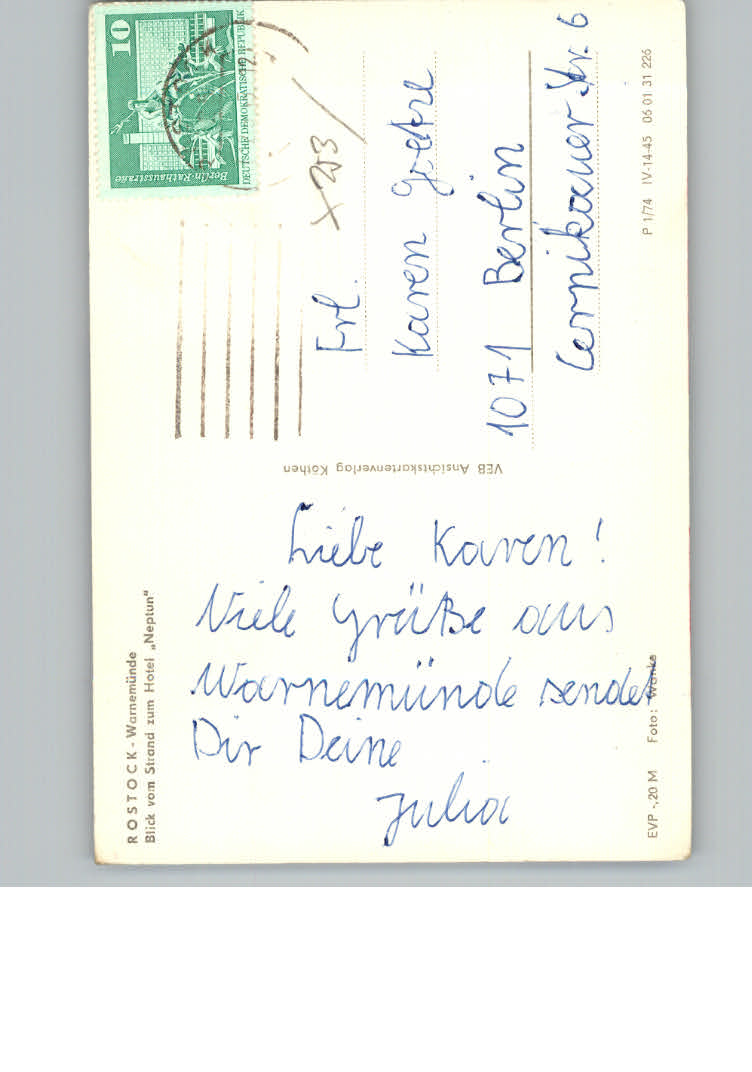 ROSTOCK - Warnemünde
Blick vom Strand zum Hotel „Neptun“
Liebe Karen!
Viele Grüße aus
Warnemünde sendet
Dir Deine
Julia
EVP -,20 M Foto: Wanke
VEB Ansichtskartenverlag Köthen
10
Berlin-Rathausstraße
DEUTSCHE DEMOKRATISCHE REPUBLIK
Frl.
Karen Goetze
1071 Berlin
Czarnikauer Str. 6
P 1/74 IV-14-45 06 01 31 226